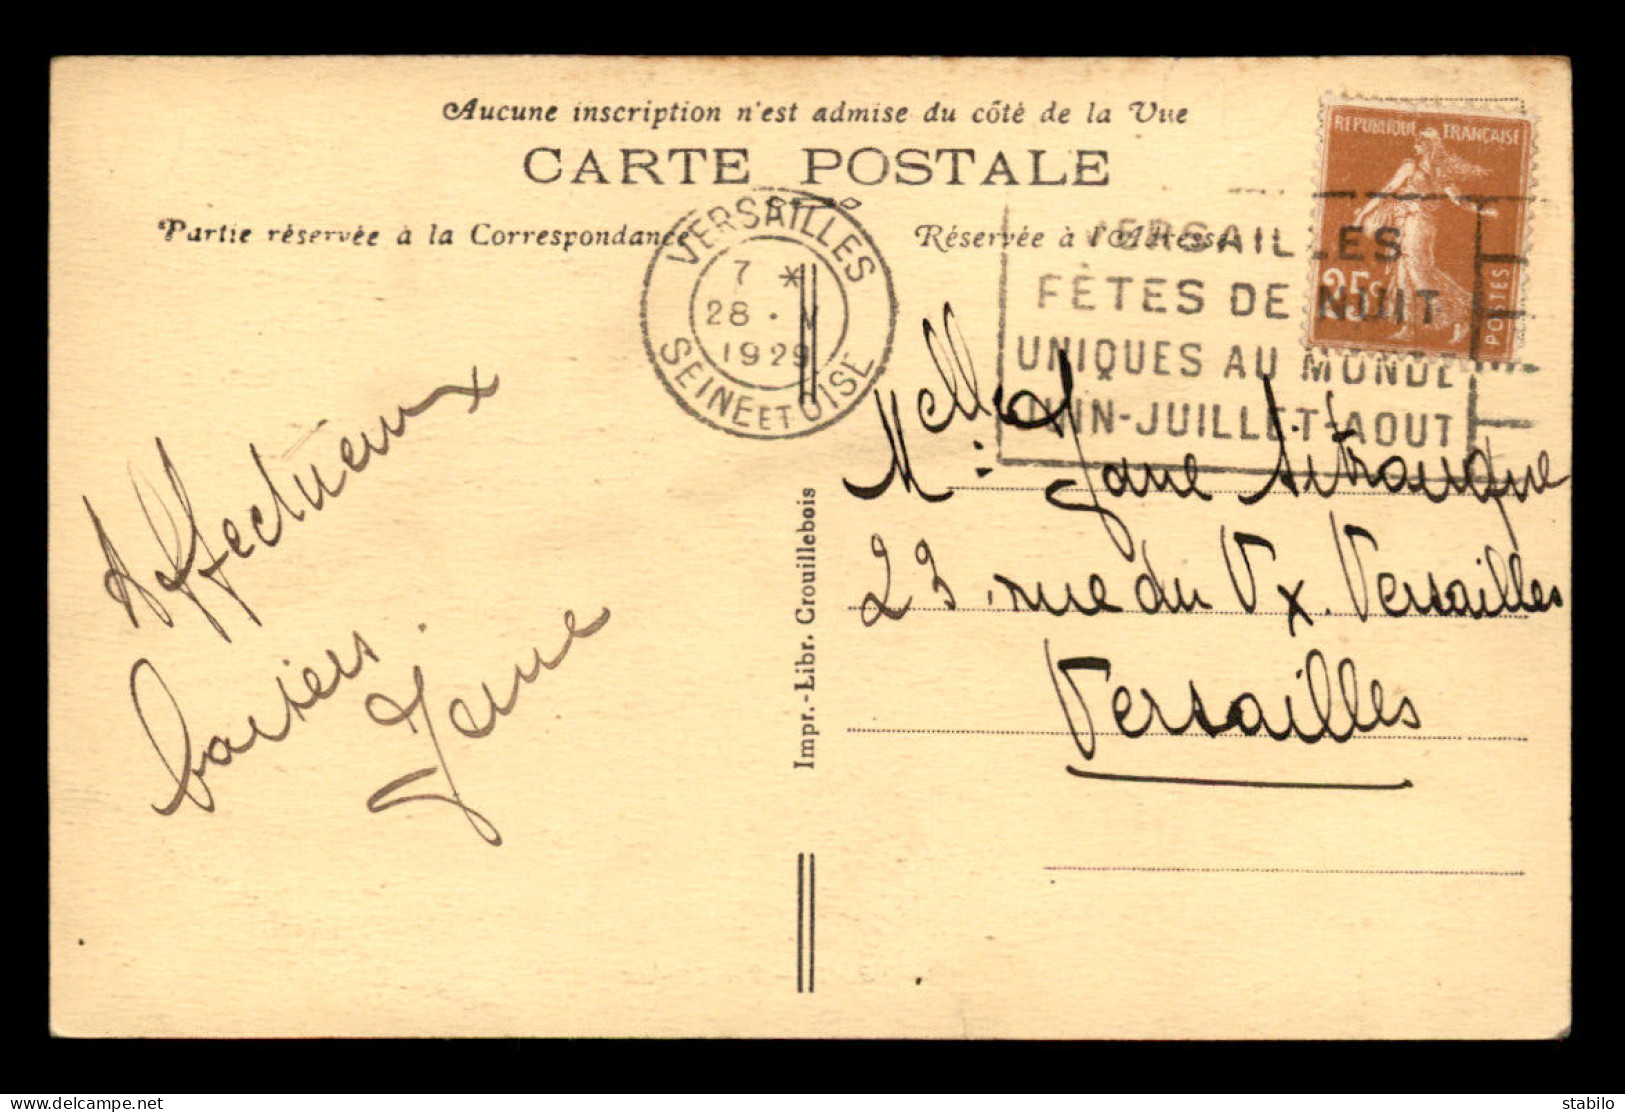 Aucune inscription n'est admise du côté de la Vue
CARTE POSTALE
Partie réservée à la Correspondance
Réservée à l'Adresse
VERSAILLES
7 *
28 · V
1929
SEINE ET OISE
VERSAILLES
FÊTES DE NUIT
UNIQUES AU MONDE
JUIN-JUILLET-AOUT
REPUBLIQUE FRANÇAISE
25c
POSTES
Affectueux
baisers
Jane
Melle Jane
23, rue du Vx. Versailles
Versailles
Impr.-Libr. Crouillebois
delcampe.net
stabilo